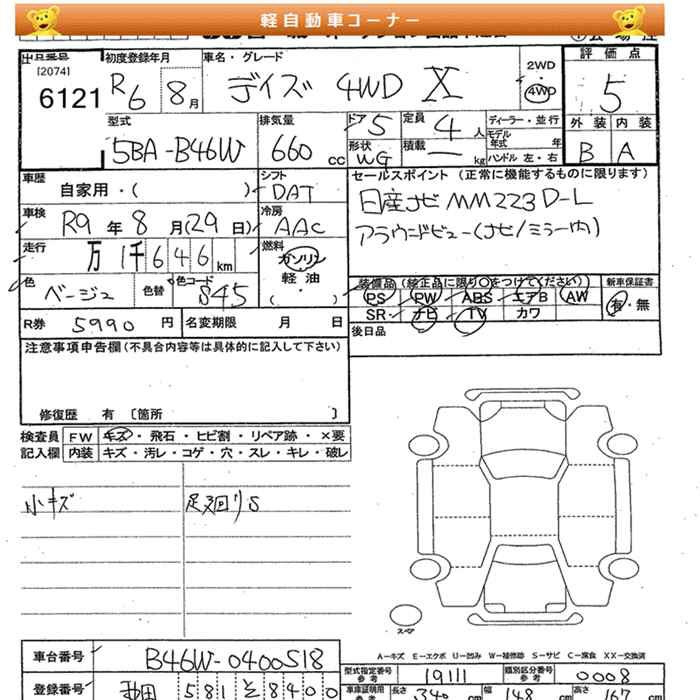 軽自動車コーナー
出品番号 初度登録年月 車名・グレード 2WD 評価点
[2074]
6121 R6 8月 デイズ 4WD X 4WD 5
型式 排気量 ドア 5 定員 4人 ディーラー・並行 外装 内装
モデル年式 年
5BA-B46W 660cc 形状 WG 積載 ー kg ハンドル 左・右 B A
車歴 シフト セールスポイント (正常に機能するものに限ります)
自家用・( ) DAT 日産ナビ MM223D-L
車検 R9年8月(29日) 冷房 AAC アラウンドビュー(ナビ/ミラー内)
走行 万1千646km 燃料 ガソリン
軽油
( )
色 ベージュ 色替 色コード S45
装備品 (純正品に限り○をつけてください) 新車保証書
PS PW ABS エアB AW 有・無
SR ナビ TV カワ
R券 5990円 名変期限 月 日 後日品
注意事項申告欄(不具合内容等は具体的に記入して下さい)
修復歴 有 [箇所 ]
検査員 FW キズ・飛石・ヒビ割・リペア跡・×要
記入欄 内装 キズ・汚レ・コゲ・穴・スレ・キレ・破レ
小キズ 足廻りS
スペア
A-キズ E-エクボ U-凹み W-補修跡 S-サビ C-腐食 XX-交換済
車台番号 B46W-0400518 型式指定番号 参考 19111 類別区分番号 参考 0008
登録番号 581 8400 車庫証明用 参考 長さ 340cm 幅 148cm 高さ 167cm